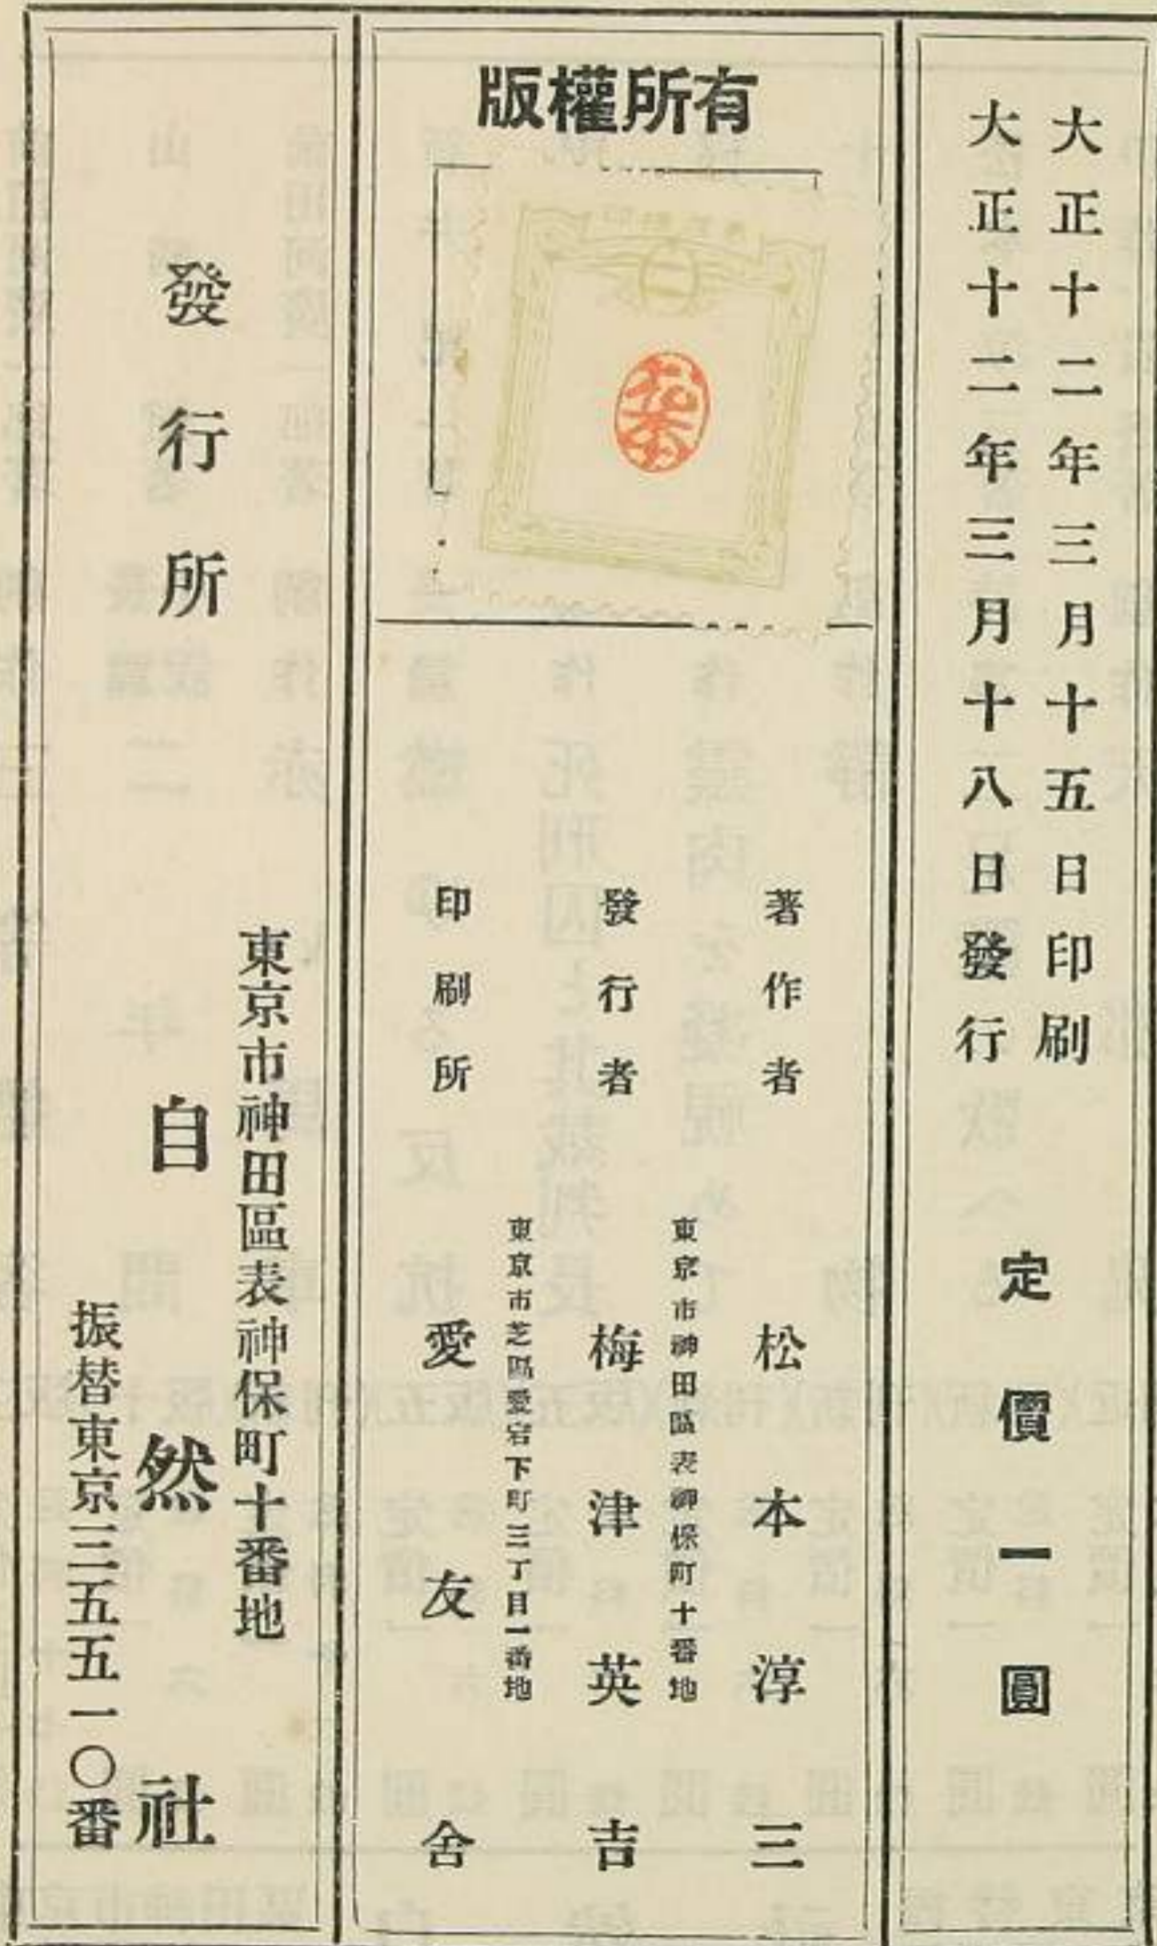 大正十二年三月十五日印刷
大正十二年三月十八日發行
定價一圓
版權所有
著作者 松本淳三
東京市神田區表神保町十番地
發行者 梅津英吉
東京市芝區愛宕下町三丁目一番地
印刷所 愛友舍
東京市神田區表神保町十番地
發行所 自然社
振替東京三五五一〇番